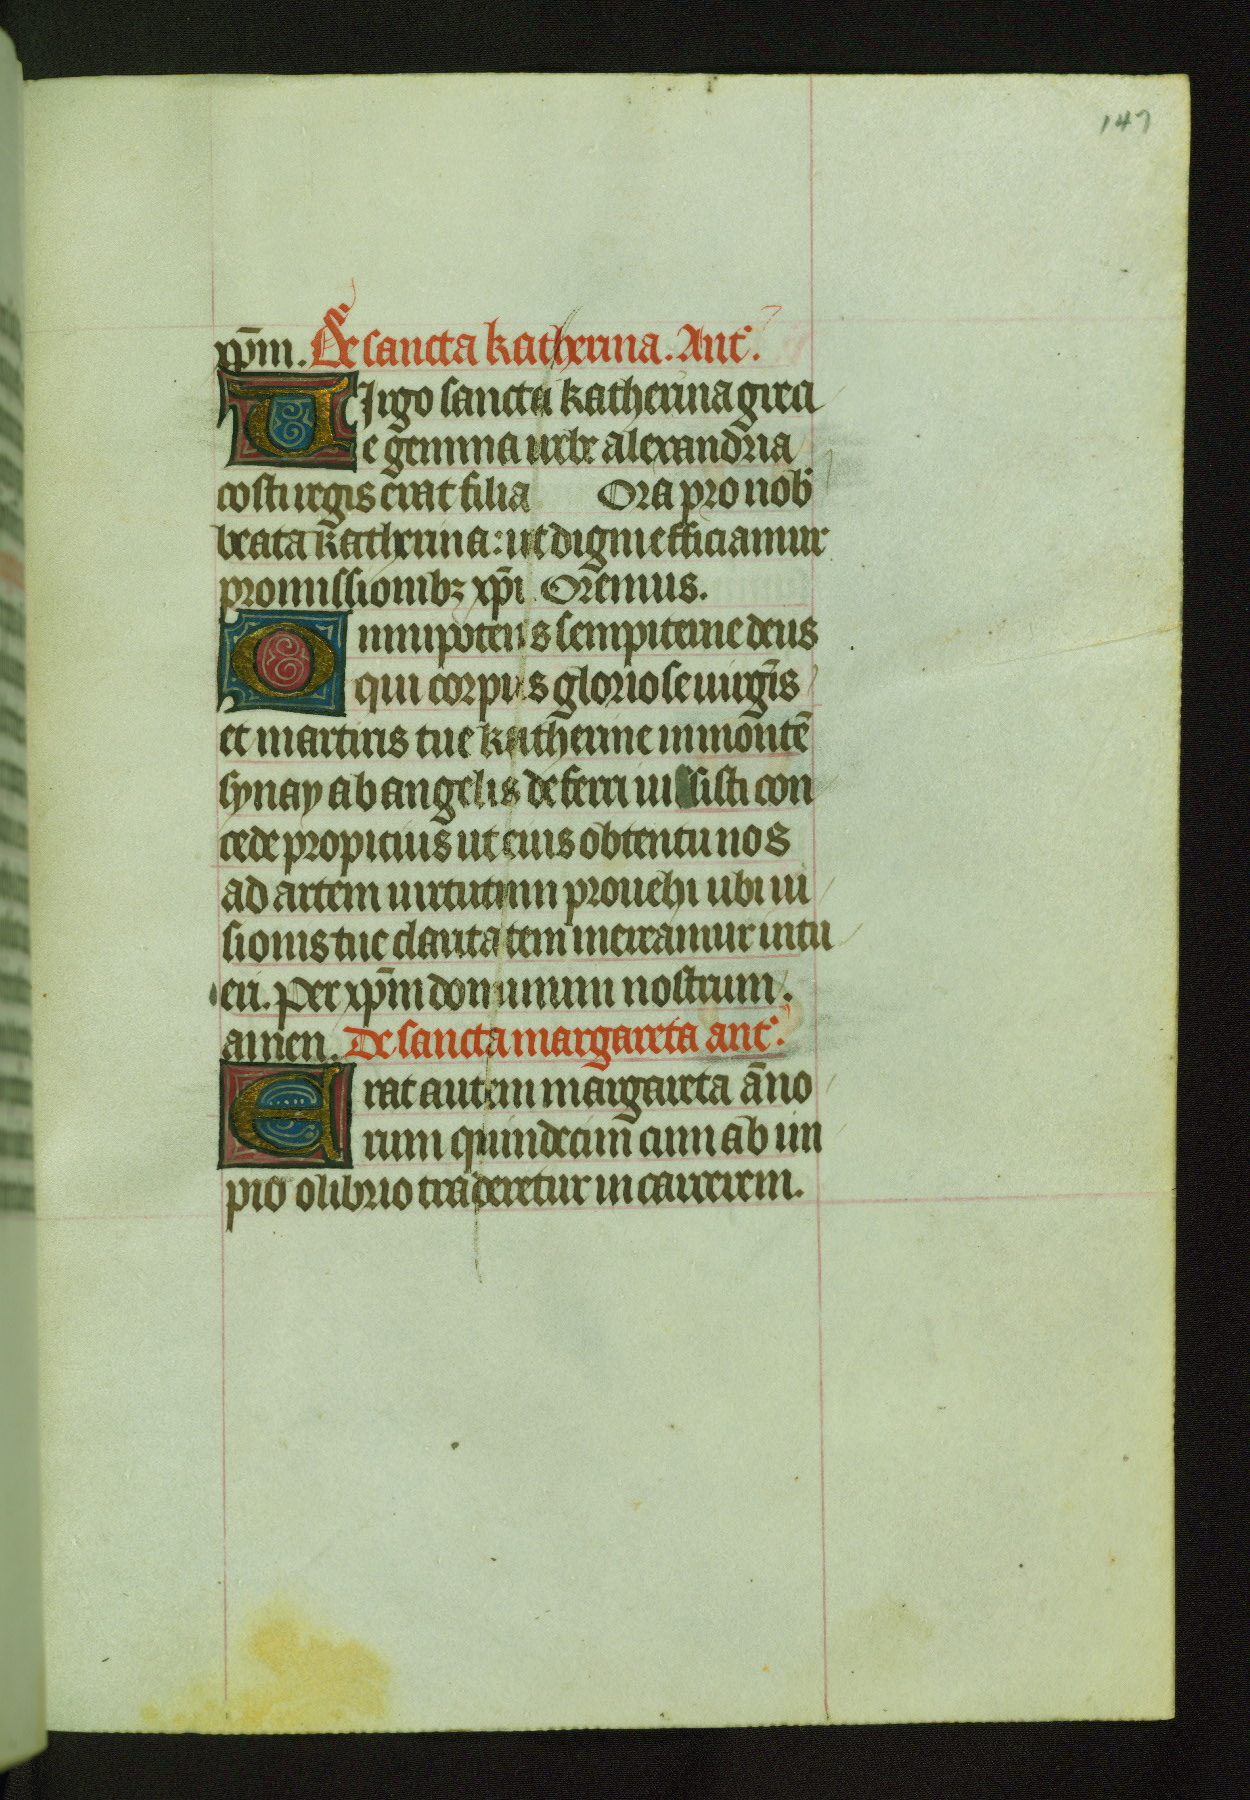 147
xp̄m. De sancta katherina. Ant̄.
VIrgo sancta katherina greci
e gemma urbe alexandria
costi regis erat filia Ora pro nob̄
beata katherina: ut digni efficiamur
promissionibꝫ xp̄i Oremus.
Omnipotens sempiterne deus
qui corpus gloriose uirgīs
et martiris tue katherine in montē
synay ab angelis deferri iussisti con
cede propicius ut eius obtentu nos
ad artem uirtutum prouehi ubi ui
sionis tue claritatem mereamur intu
eri. Per xp̄m dominum nostrum.
amen. De sancta margareta ant̄.
Erat autem margareta āno
rum quindecim cum ab im
pio olibrio traderetur in carcerem.